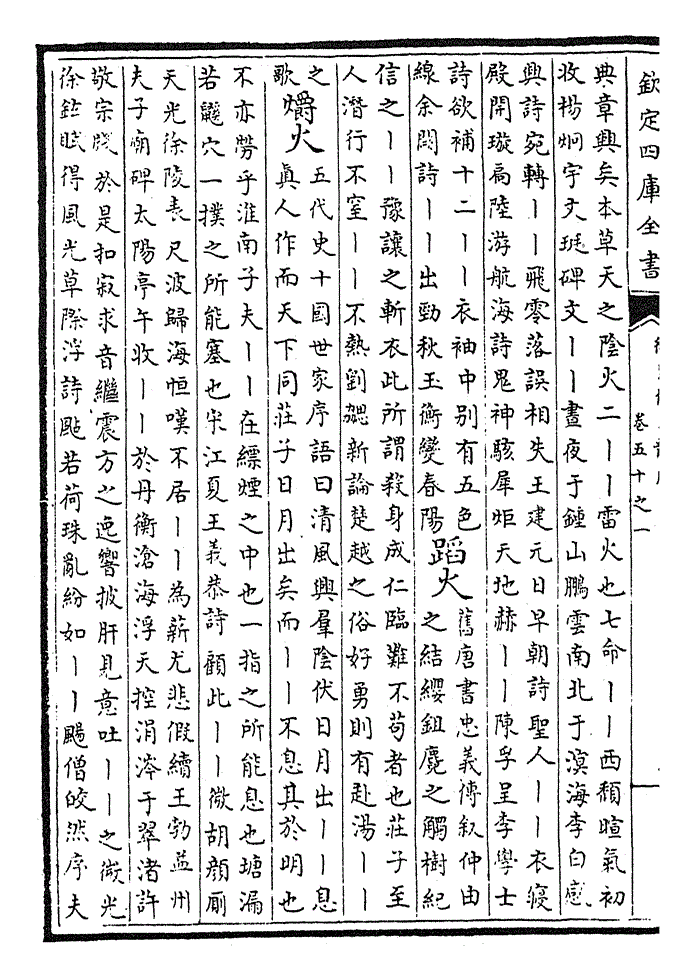 欽定四庫全書
卷五十之一
典章興矣本草天之陰火二丨丨雷火也七命丨丨西頹暄氣初
收楊炯宇文珽碑文丨丨晝夜于鍾山鵬雲南北于溟海李白感
興詩宛轉丨丨飛零落誤相失王建元日早朝詩聖人丨丨衣寢
殿開璇扃陸游航海詩鬼神駭犀炬天地赫丨丨陳孚呈李學士
詩欲補十二丨丨衣袖中别有五色
線余闕詩丨丨出勁秋玉衡變春陽
蹈火
舊唐書忠義傳叙仲由
之結纓鉏麑之觸樹紀
信之丨丨豫讓之斬衣此所謂殺身成仁臨難不苟者也莊子至
人潛行不窒丨丨不熱劉勰新論楚越之俗好勇則有赴湯丨丨
之
歌
爝火
五代史十國世家序語曰清風興羣陰伏日月出丨丨息
真人作而天下同莊子日月出矣而丨丨不息其於明也
不亦勞乎淮南子夫丨丨在縹煙之中也一指之所能息也瑭漏
若鼷穴一撲之所能塞也宋江夏王義恭詩顧此丨丨微胡顔厠
天光徐陵表尺波歸海恒嘆不居丨丨為薪尤悲假續王勃益州
夫子廟碑太陽亭午收丨丨於丹衡滄海浮天控涓涔于翠渚許
敬宗牋於是扣寂求音繼震方之逸響披肝見意吐丨丨之微光
徐鉉賦得風光草際浮詩颭若荷珠亂紛如丨丨颺僧皎然序夫